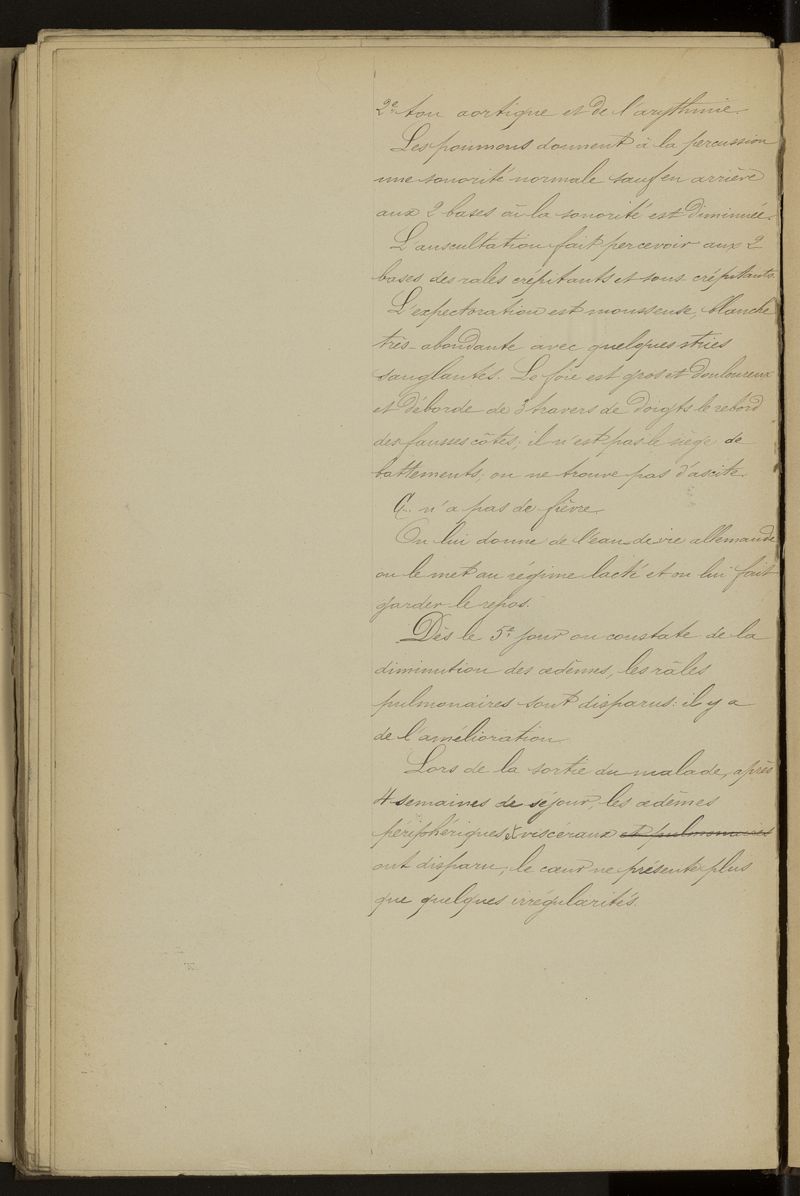 2e ton aortique et de l'arythmie.
Les poumons donnent à la percussion
une sonorité normale sauf en arrière
aux 2 bases où la sonorité est diminuée.
L'auscultation fait percevoir aux 2
bases des rales crépitants et sous crépitants.
L'expectoration est mousseuse, blanche
très-abondante avec quelques stries
sanglantes. Le foie est gros et douloureux
et déborde de 3 travers de doigts le rebord
des fausses côtes; il n'est pas le siège de
battements; on ne trouve pas d'ascite.
C... n'a pas de fièvre.
On lui donne de l'eau-de-vie allemande
on le met au régime lacté et on lui fait
garder le repos.
Dès le 5e jour on constate de la
diminution des œdèmes, les râles
pulmonaires sont disparus: il y a
de l'amélioration.
Lors de la sortie du malade, après
4 semaines de séjour, les œdèmes
périphériques et viscéraux et pulmonaires
ont disparu, le cœur ne présente plus
que quelques irrégularités.